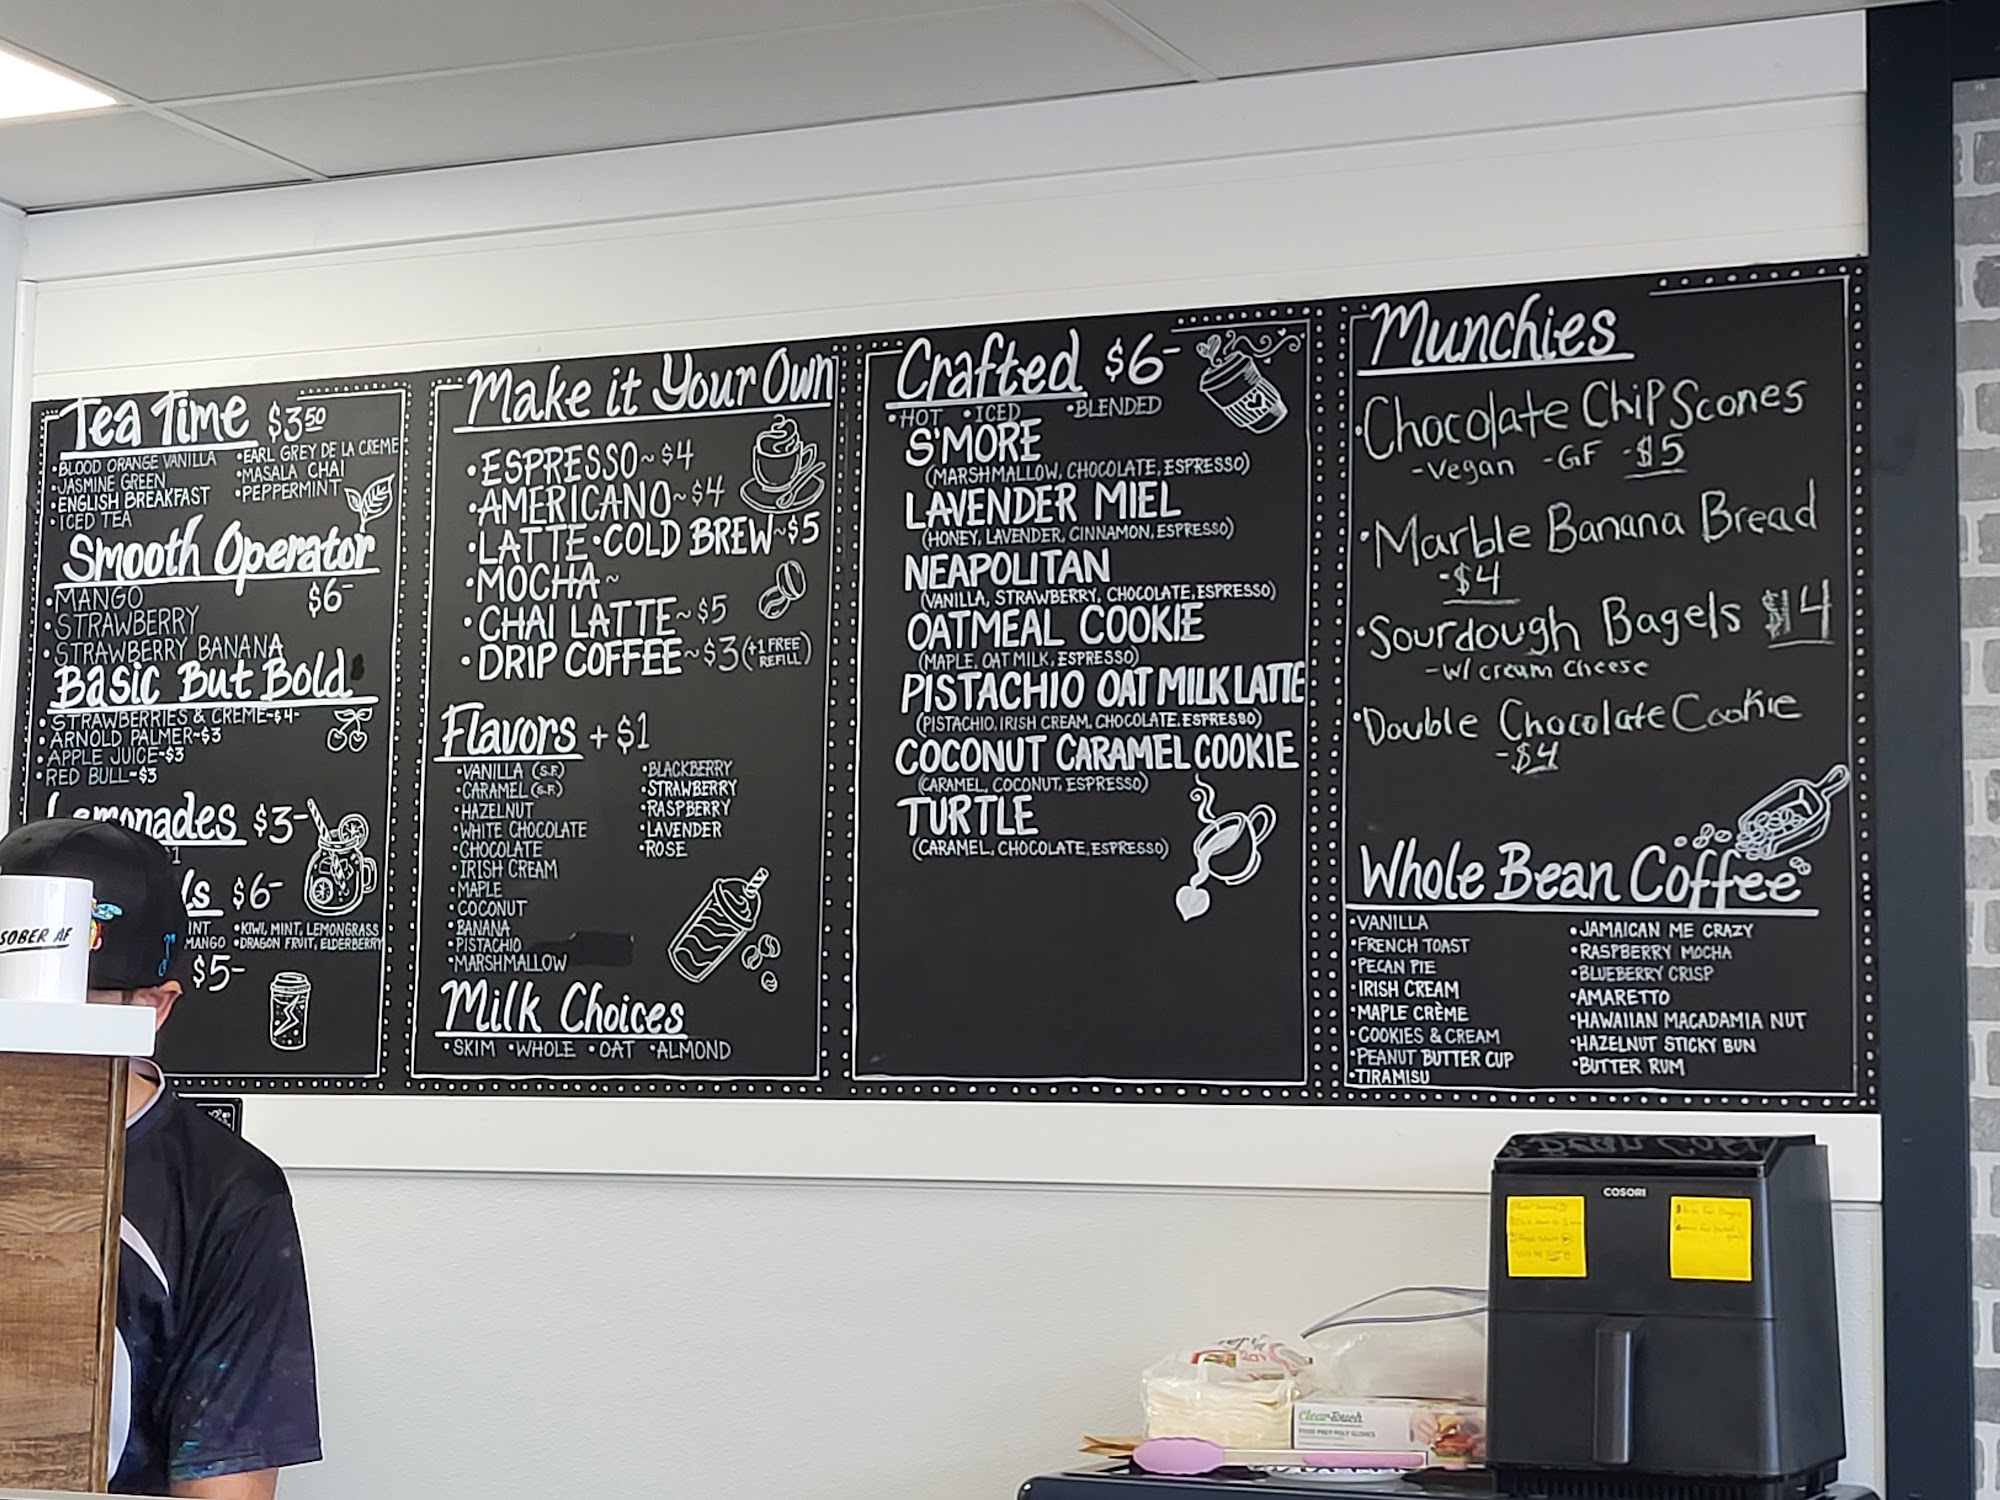 Tea Time $3.50
• BLOOD ORANGE VANILLA
• JASMINE GREEN
• ENGLISH BREAKFAST
• ICED TEA
• EARL GREY DE LA CREME
• MASALA CHAI
• PEPPERMINT
Smooth Operator
$6-
• MANGO
• STRAWBERRY
• STRAWBERRY BANANA
Basic But Bold
• STRAWBERRIES & CREME~$4-
• ARNOLD PALMER~$3
• APPLE JUICE~$3
• RED BULL~$3
Lemonades $3-
$6-
• KIWI, MINT, LEMONGRASS
MANGO • DRAGON FRUIT, ELDERBERRY
$5-
SOBER AF
Make it Your Own
• ESPRESSO~$4
• AMERICANO~$4
• LATTE • COLD BREW~$5
• MOCHA~
• CHAI LATTE~$5
• DRIP COFFEE~$3 (+1 FREE REFILL)
Flavors + $1
• VANILLA (S.F.)
• CARAMEL (S.F.)
• HAZELNUT
• WHITE CHOCOLATE
• CHOCOLATE
• IRISH CREAM
• MAPLE
• COCONUT
• BANANA
• PISTACHIO
• MARSHMALLOW
• BLACKBERRY
• STRAWBERRY
• RASPBERRY
• LAVENDER
• ROSE
Milk Choices
• SKIM • WHOLE • OAT • ALMOND
Crafted $6-
• HOT • ICED • BLENDED
S'MORE
(MARSHMALLOW, CHOCOLATE, ESPRESSO)
LAVENDER MIEL
(HONEY, LAVENDER, CINNAMON, ESPRESSO)
NEAPOLITAN
(VANILLA, STRAWBERRY, CHOCOLATE, ESPRESSO)
OATMEAL COOKIE
(MAPLE, OAT MILK, ESPRESSO)
PISTACHIO OAT MILK LATTE
(PISTACHIO, IRISH CREAM, CHOCOLATE, ESPRESSO)
COCONUT CARAMEL COOKIE
(CARAMEL, COCONUT, ESPRESSO)
TURTLE
(CARAMEL, CHOCOLATE, ESPRESSO)
Munchies
• Chocolate Chip Scones
-Vegan -GF -$5
• Marble Banana Bread
-$4
• Sourdough Bagels $4
-w/ cream cheese
• Double Chocolate Cookie
-$4
Whole Bean Coffee
• VANILLA
• FRENCH TOAST
• PECAN PIE
• IRISH CREAM
• MAPLE CRÈME
• COOKIES & CREAM
• PEANUT BUTTER CUP
• TIRAMISU
• JAMAICAN ME CRAZY
• RASPBERRY MOCHA
• BLUEBERRY CRISP
• AMARETTO
• HAWAIIAN MACADAMIA NUT
• HAZELNUT STICKY BUN
• BUTTER RUM
COSORI
ClearTouch
FOOD PREP POLY GLOVES